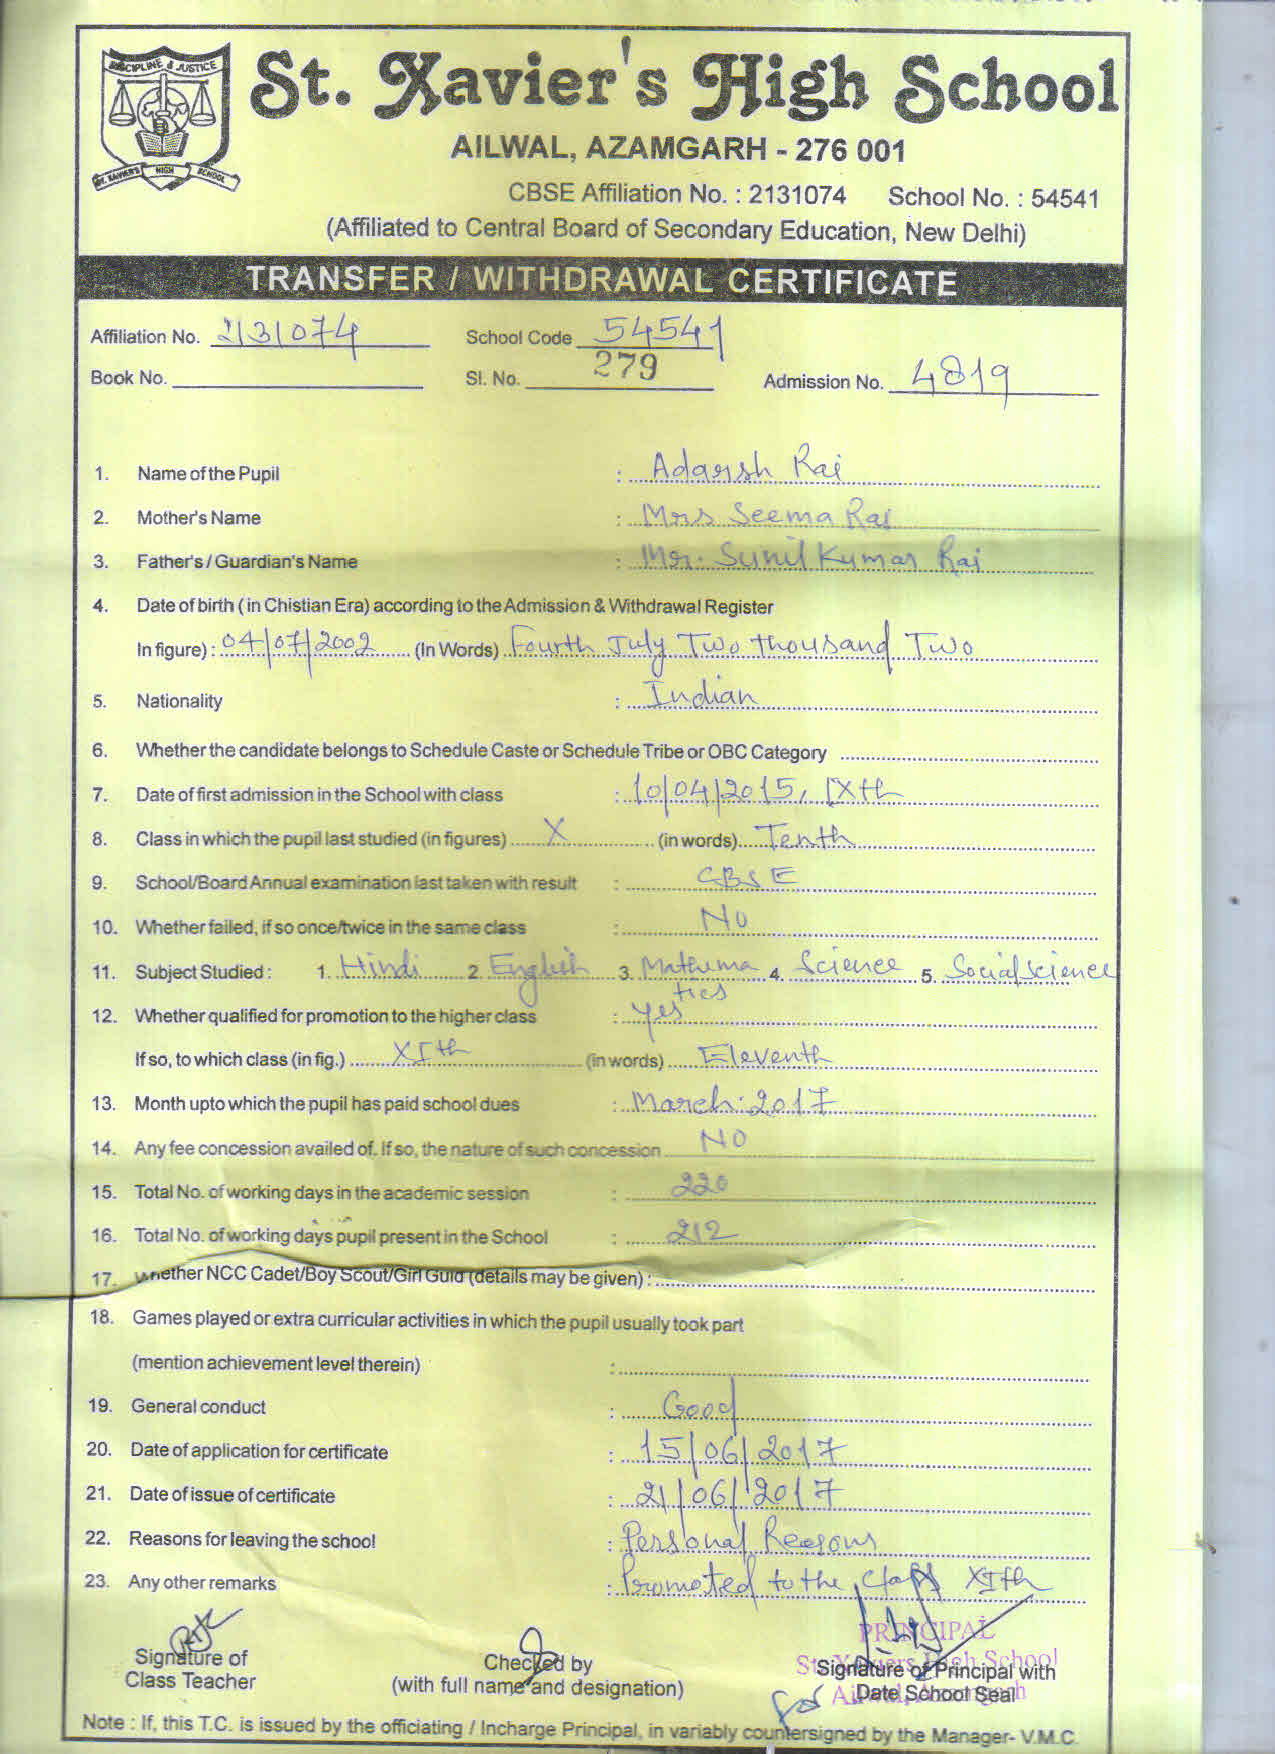 DISCIPLINE & JUSTICE
ST. XAVIER'S HIGH SCHOOL
St. Xavier's High School
AILWAL, AZAMGARH - 276 001
CBSE Affiliation No. : 2131074 School No. : 54541
(Affiliated to Central Board of Secondary Education, New Delhi)
TRANSFER / WITHDRAWAL CERTIFICATE
Affiliation No. 2131074 School Code 54541
Book No. Sl. No. 279 Admission No. 4819
1. Name of the Pupil : Adarsh Rai
2. Mother's Name : Mrs Seema Rai
3. Father's / Guardian's Name : Mr. Sunil Kumar Rai
4. Date of birth ( in Chistian Era) according to the Admission & Withdrawal Register
In figure) : 04/07/2002 (In Words) Fourth July Two thousand Two
5. Nationality : Indian
6. Whether the candidate belongs to Schedule Caste or Schedule Tribe or OBC Category
7. Date of first admission in the School with class : 10/04/2015, IXth
8. Class in which the pupil last studied (in figures) X (in words) Tenth
9. School/Board Annual examination last taken with result : CBSE
10. Whether failed, if so once/twice in the same class : No
11. Subject Studied : 1. Hindi 2. English 3. Mathema 4. Science 5. Social science
tics
12. Whether qualified for promotion to the higher class : Yes
If so, to which class (in fig.) XIth (in words) Eleventh
13. Month upto which the pupil has paid school dues : March. 2017
14. Any fee concession availed of. If so, the nature of such concession NO
15. Total No. of working days in the academic session : 220
16. Total No. of working days pupil present in the School : 212
17. Whether NCC Cadet/Boy Scout/Girl Guid (details may be given) :
18. Games played or extra curricular activities in which the pupil usually took part
(mention achievement level therein) :
19. General conduct : Good
20. Date of application for certificate : 15/06/2017
21. Date of issue of certificate : 21/06/2017
22. Reasons for leaving the school : Personal Reasons
23. Any other remarks : Promoted to the class XIth
PRINCIPAL
St. Xaviers High School
Ailwal, Azamgarh
Signature of Class Teacher
Checked by
(with full name and designation)
Signature of Principal with
Date School Seal
Note : If, this T.C. is issued by the officiating / Incharge Principal, in variably countersigned by the Manager- V.M.C.